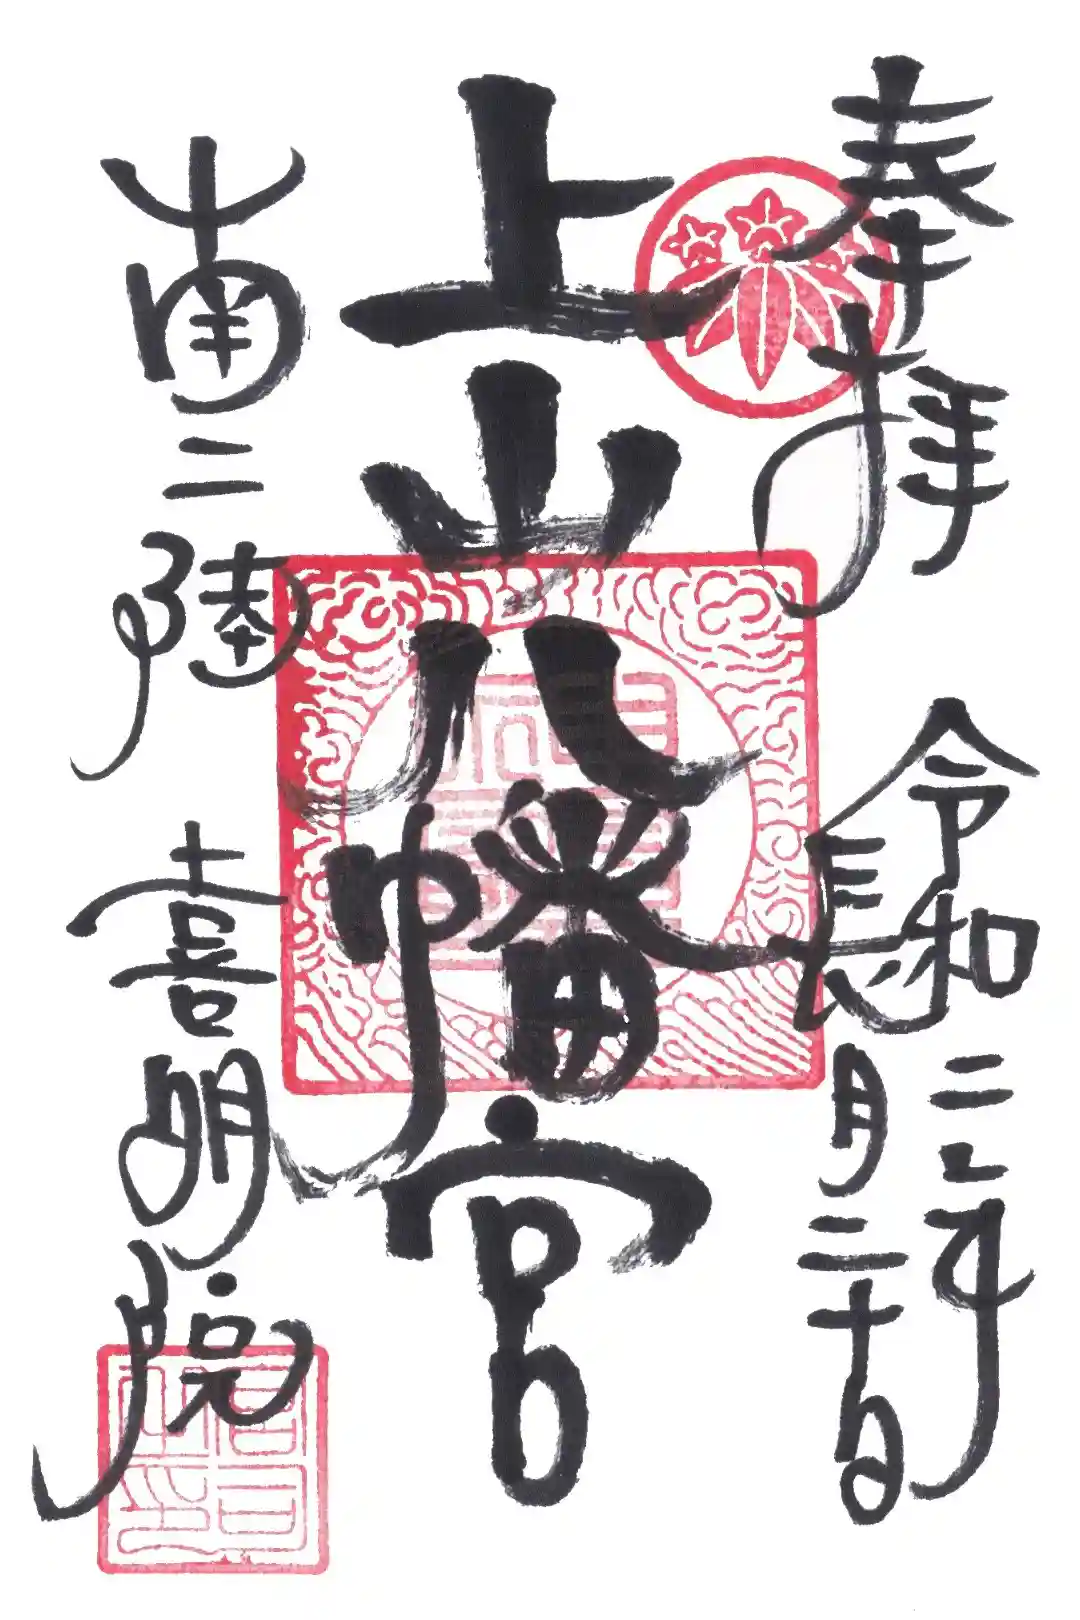 奉拝
令和二年
長月二十日
上山八幡宮
南三陸 喜明院